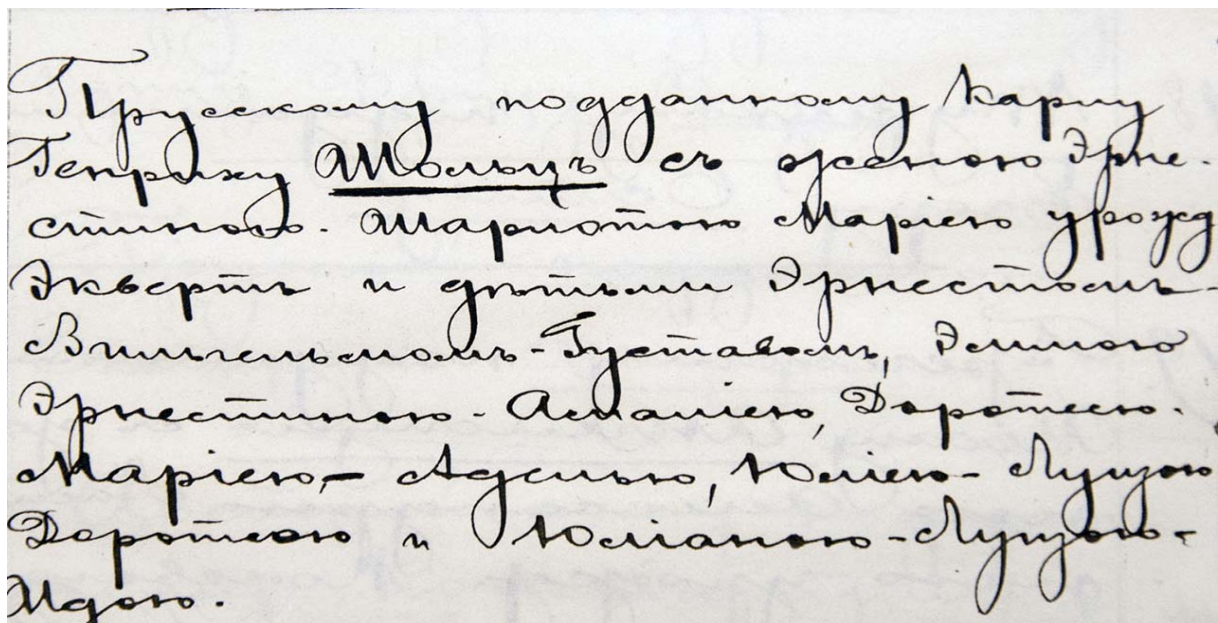 Прусскому подданному Карлу
Генриху Шольцъ съ женою Эрне-
стиною-Шарлотою Маріею урожд
Экбертъ и дѣтьми Эрнестомъ-
Вильгельмомъ-Густавомъ, Эммою
Эрнестиною-Амаліею, Доротеею-
Маріею,- Аделью, Юліею-Луизою
Доротеею и Юліаною-Луизою-
Идою.